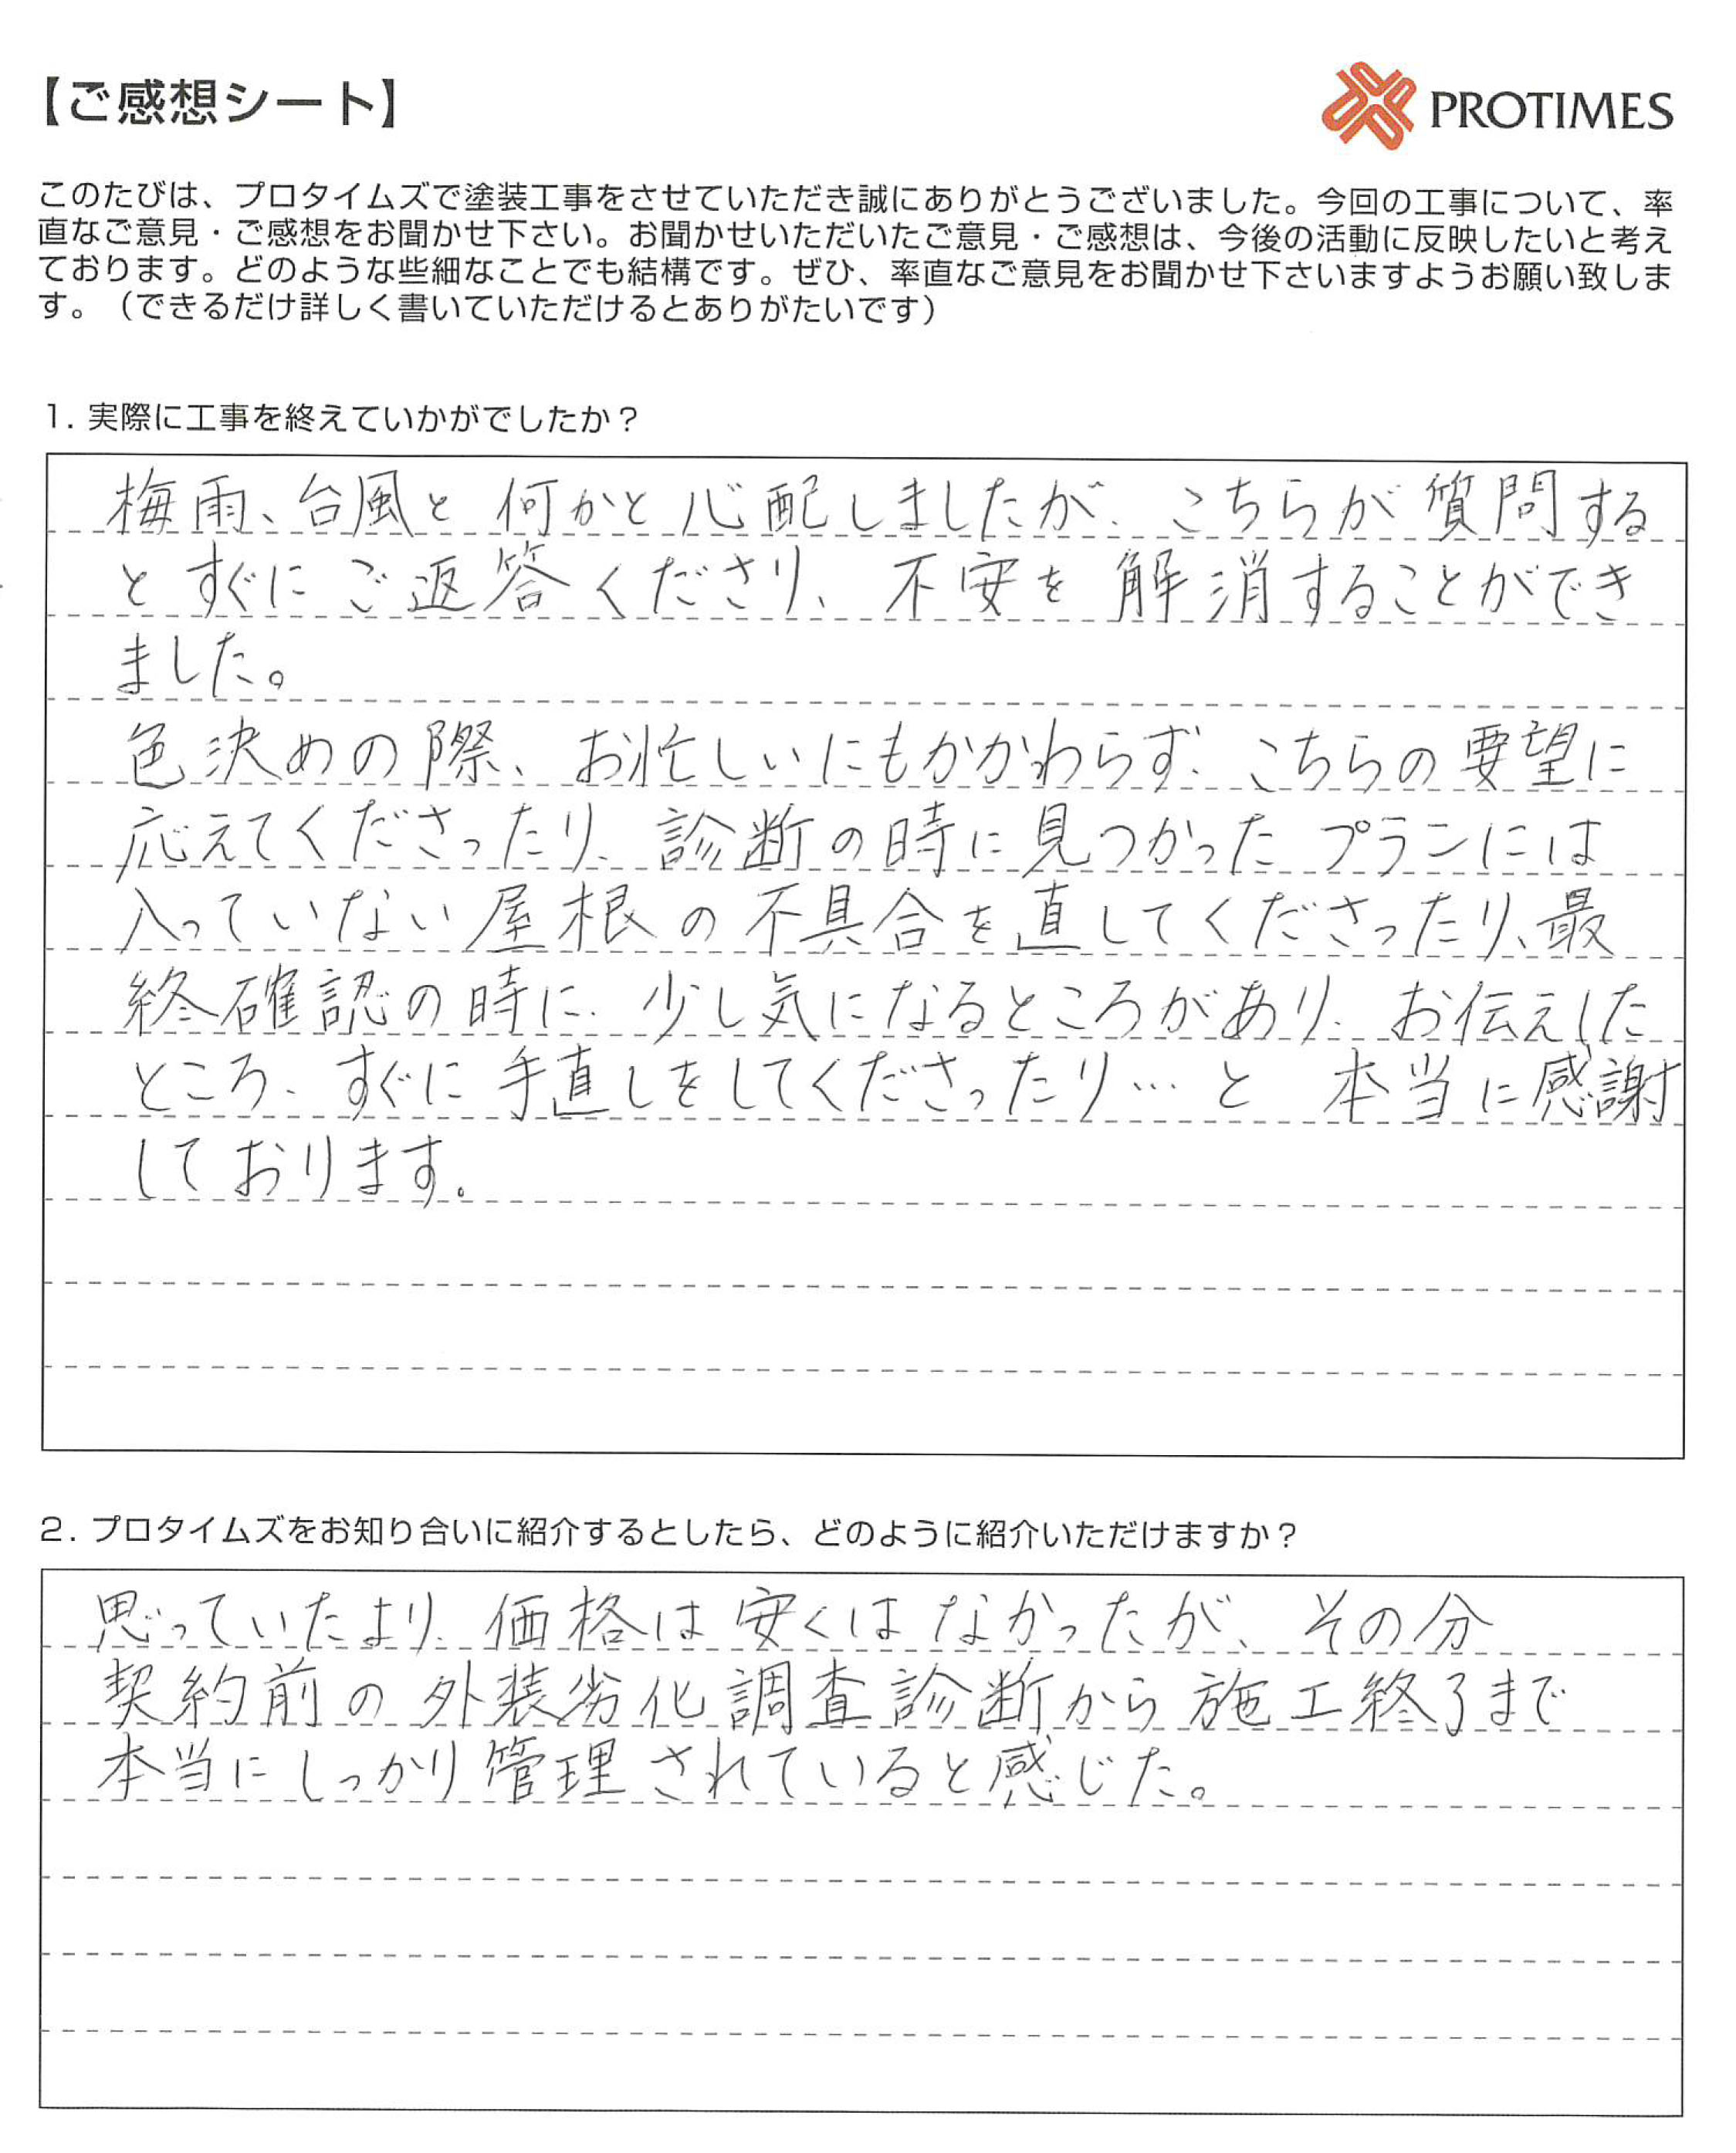 【ご感想シート】
PROTIMES
このたびは、プロタイムズで塗装工事をさせていただき誠にありがとうございました。今回の工事について、率
直なご意見・ご感想をお聞かせ下さい。お聞かせいただいたご意見・ご感想は、今後の活動に反映したいと考え
ております。どのような些細なことでも結構です。ぜひ、率直なご意見をお聞かせ下さいますようお願い致しま
す。（できるだけ詳しく書いていただけるとありがたいです）
1. 実際に工事を終えていかがでしたか？
梅雨、台風と何かと心配しましたが、こちらが質問する
とすぐにご返答くださり、不安を解消することができ
ました。
色決めの際、お忙しいにもかかわらず、こちらの要望に
応えてくださったり、診断の時に見つかったプランには
入っていない屋根の不具合を直してくださったり、最
終確認の時に、少し気になるところがあり、お伝えした
ところ、すぐに手直しをしてくださったり…と 本当に感謝
しております。
2. プロタイムズをお知り合いに紹介するとしたら、どのように紹介いただけますか？
思っていたより、価格は安くはなかったが、その分
契約前の外装劣化調査診断から施工終了まで
本当にしっかり管理されていると感じた。